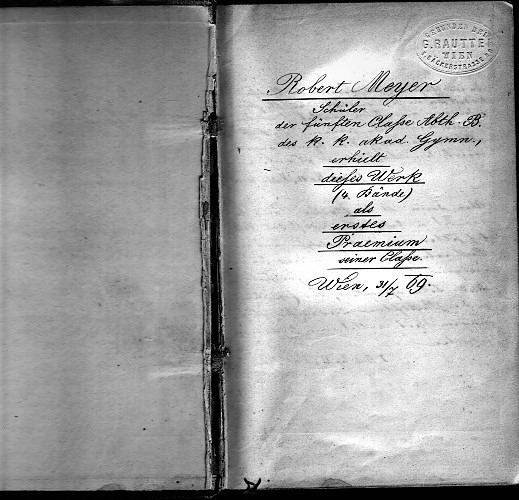 GEBUNDEN BEI
G. RAUTTE
WIEN
Robert Meyer
Schüler
der fünften Classe Abth. B.
des k. k. akad. Gymn.,
erhielt
dieses Werk
(4. Bände)
als
erstes
Praemium
seiner Classe.
Wien, 31/7 69.